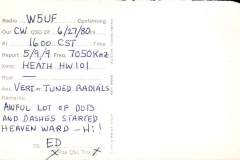 Radio W5UF Confirming
Our CW QSO Of 6/27/80
At 1600 CST Time
Report 5/9/9 Freq 7050KHz
Xmtr HEATH HW101
Ant VERT - TUNED RADIALS
Remarks
AWFUL LOT OF DOTS
AND DASHES STARTED
HEAVEN WARD - Hi!
To ED
Pse QSL Tnx